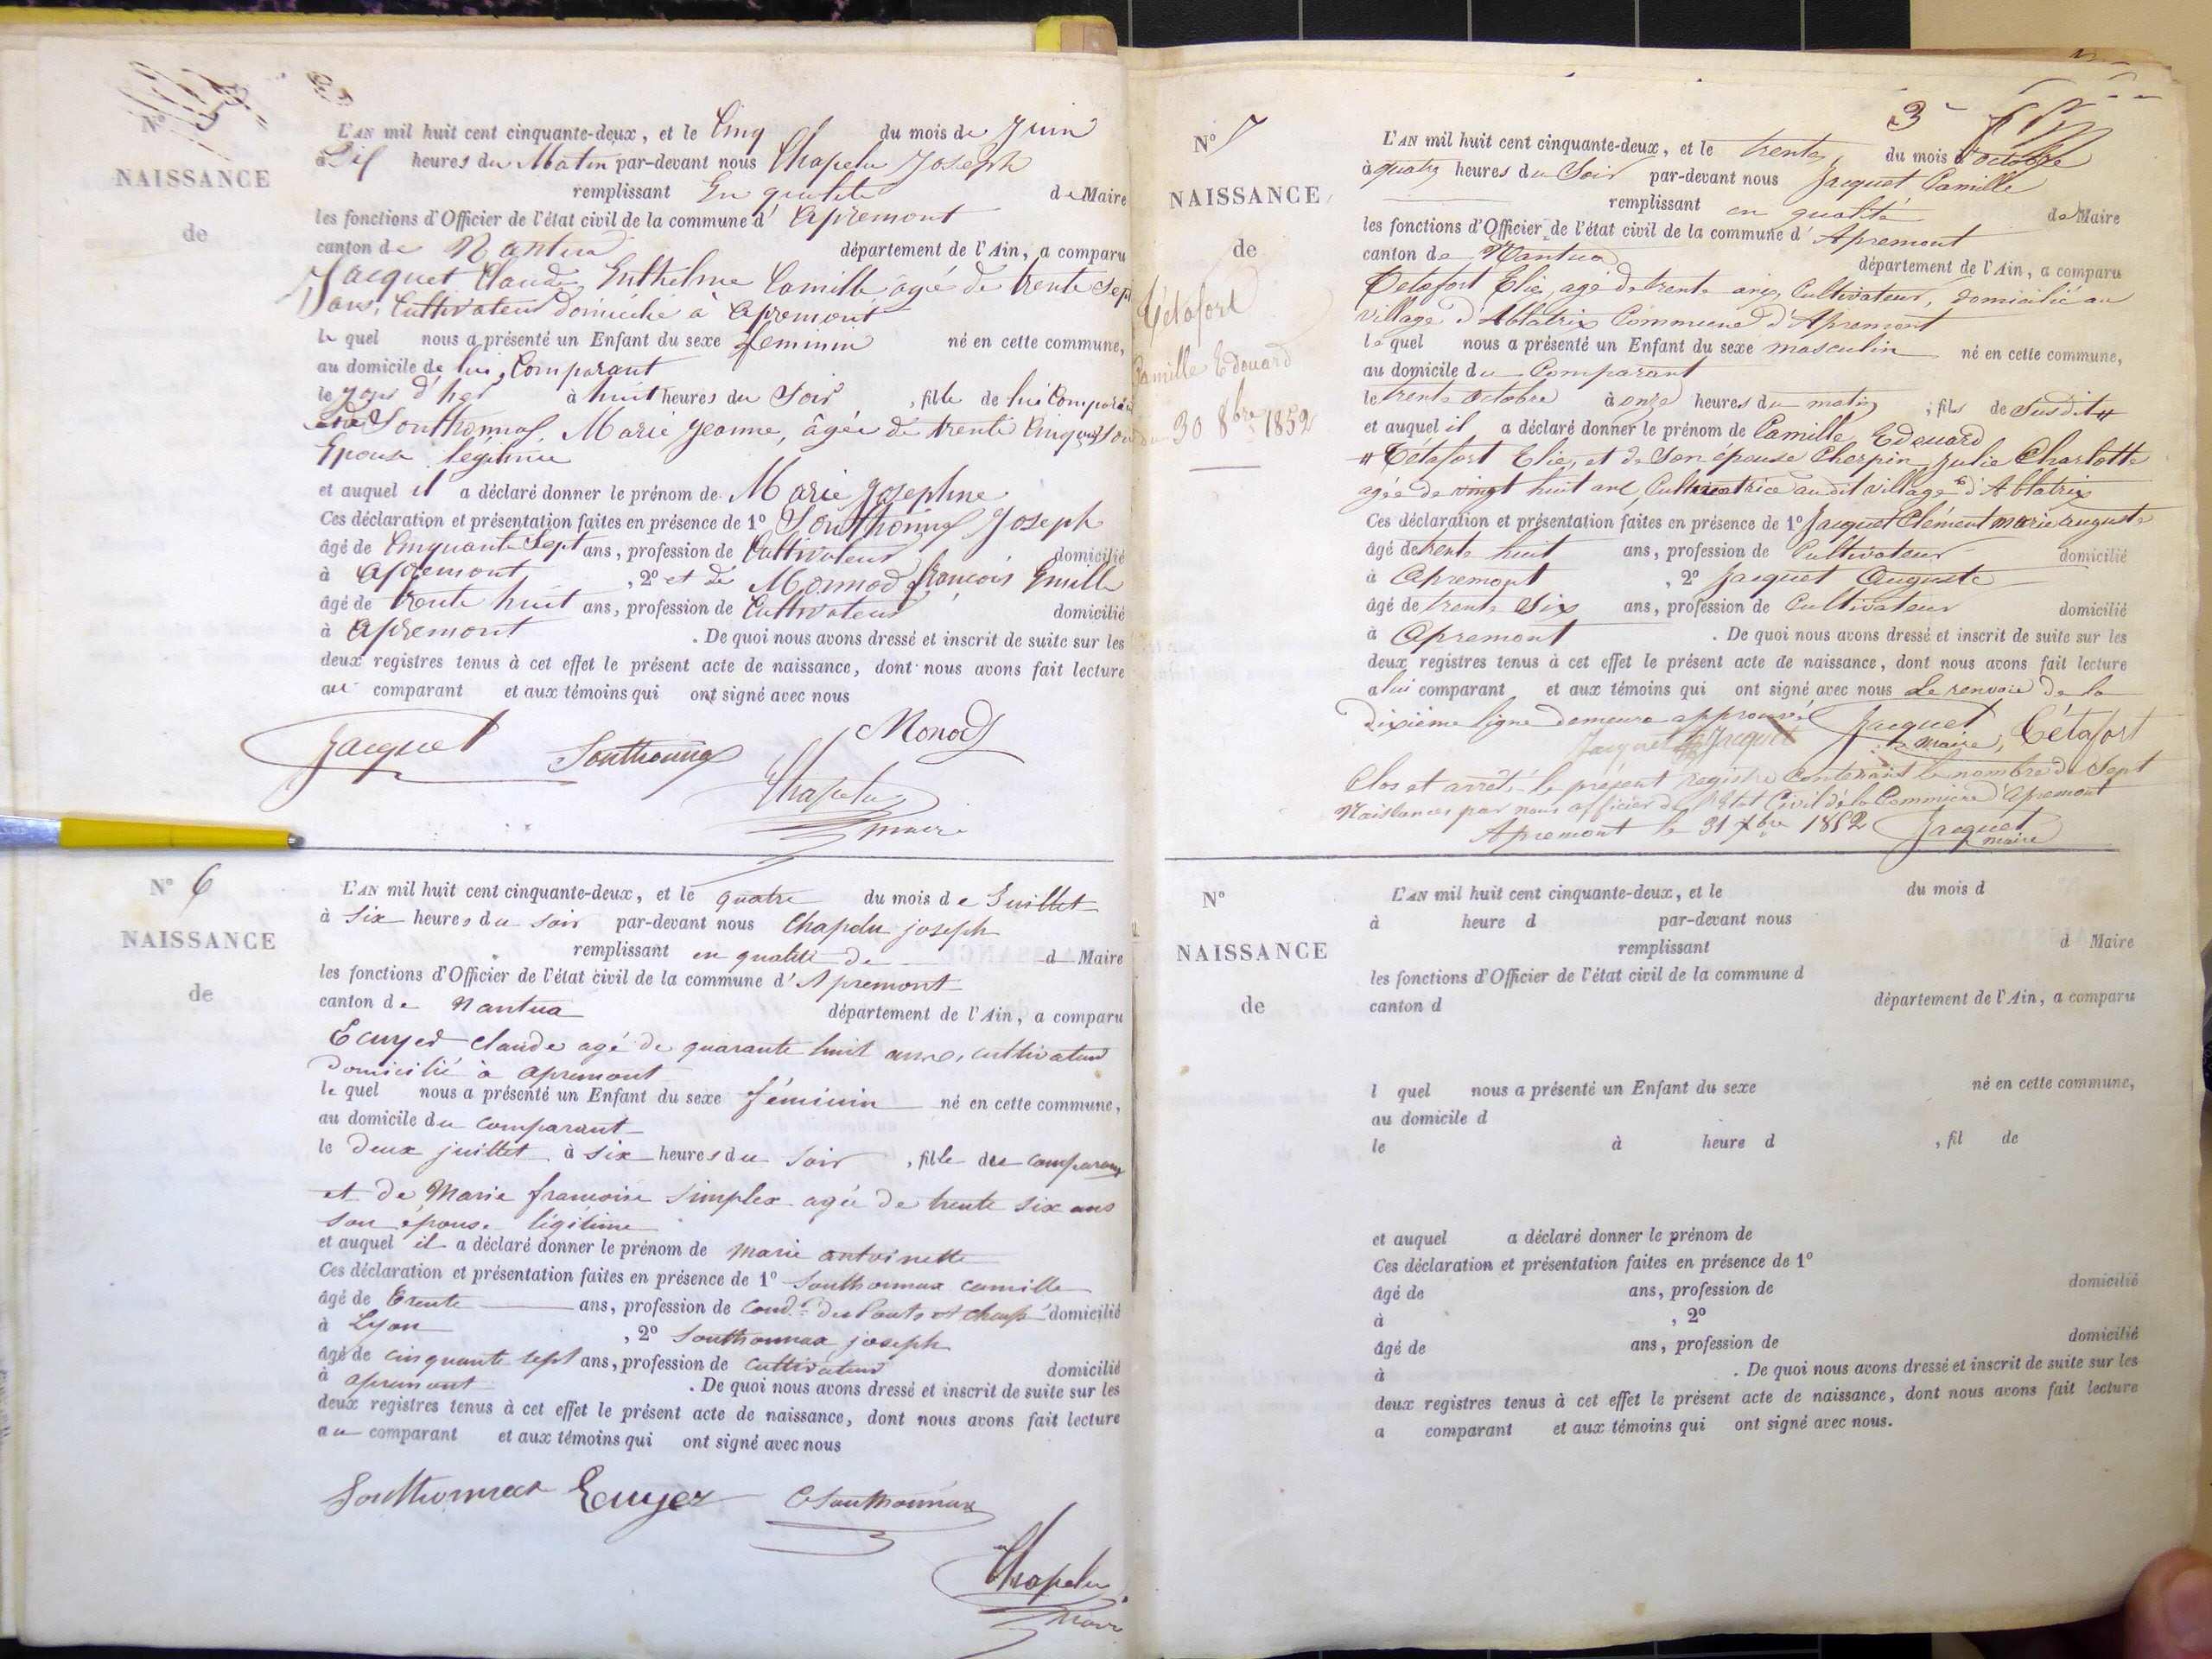 Nº
NAISSANCE
de
L'AN mil huit cent cinquante-deux, et le Cinq du mois de Juin
à heures du Matin par-devant nous Chapelu Joseph
remplissant En qualité de Maire
les fonctions d'Officier de l'état civil de la commune d' Apremont
canton de Nantua département de l'Ain, a comparu
Jacquet Claude Enthelme Camille âgé de trente Sept
ans, Cultivateur domicilié à Apremont
le quel nous a présenté un Enfant du sexe feminin né en cette commune,
au domicile de lui, Comparant
le jour d'hier à huit heures du Soir, fille de lui Comparant
Southonnax, Marie Jeanne, âgée de trente Cinq ans Son
Epouse légitime
et auquel il a déclaré donner le prénom de Marie Josephine
Ces déclaration et présentation faites en présence de 1º Southonnax Joseph
âgé de Cinquante Sept ans, profession de Cultivateur domicilié
à Apremont, 2º et de Monnod françois Emille
âgé de trente huit ans, profession de Cultivateur domicilié
à Apremont. De quoi nous avons dressé et inscrit de suite sur les
deux registres tenus à cet effet le présent acte de naissance, dont nous avons fait lecture
au comparant et aux témoins qui ont signé avec nous
Jacquet Southonnax Monod
Chapelu
maire
Nº 6
NAISSANCE
de
L'AN mil huit cent cinquante-deux, et le quatre du mois de Juillet
à six heures du soir par-devant nous Chapelu joseph
remplissant en qualité de d Maire
les fonctions d'Officier de l'état civil de la commune d'Apremont
canton de Nantua département de l'Ain, a comparu
Ecuyer claude agé de quarante huit ans, cultivateur
domicilié à apremont
le quel nous a présenté un Enfant du sexe féminin né en cette commune,
au domicile du comparant
le deux juillet à six heures du soir, fille du comparant
et de Marie francoise Simplex agée de trente six ans
son épouse légitime
et auquel il a déclaré donner le prénom de marie antoinette
Ces déclaration et présentation faites en présence de 1º Southonnax camille
âgé de trente ans, profession de cond.r des Ponts et chaus.ées domicilié
à Lyon, 2º Southonnax joseph
âgé de cinquante sept ans, profession de cultivateur domicilié
à apremont. De quoi nous avons dressé et inscrit de suite sur les
deux registres tenus à cet effet le présent acte de naissance, dont nous avons fait lecture
au comparant et aux témoins qui ont signé avec nous
Southonnax Ecuyer CSouthonnax
Chapelu
maire
3
Nº 7
NAISSANCE
de
Tétafort
Camille Edouard
du 30 8bre 1852
L'AN mil huit cent cinquante-deux, et le trente, du mois d'octobre
à quatre heures du Soir par-devant nous Jacquet Camille
remplissant en qualité de Maire
les fonctions d'Officier de l'état civil de la commune d'Apremont
canton de Nantua département de l'Ain, a comparu
Tétafort Elie, agé de trente ans, Cultivateur, domicilié au
village d'Ablatrix Commune d'Apremont
le quel nous a présenté un Enfant du sexe masculin né en cette commune,
au domicile du Comparant
le trente octobre à onze heures du matin, fils de Susdit #
et auquel il a déclaré donner le prénom de Camille Edouard
# Tétafort Elie, et de Son épouse Cherpin Julie Charlotte
agée de vingt huit ans, Cultivatrice au dit village d'Ablatrix
Ces déclaration et présentation faites en présence de 1º Jacquet Clément marie auguste
âgé de trente huit ans, profession de Cultivateur domicilié
à Apremont, 2º Jacquet Auguste
âgé de trente Six ans, profession de Cultivateur domicilié
à Apremont. De quoi nous avons dressé et inscrit de suite sur les
deux registres tenus à cet effet le présent acte de naissance, dont nous avons fait lecture
a lui comparant et aux témoins qui ont signé avec nous Le renvoie de la
dixième ligne demeure approuvé Jacquet maire, Tétafort
Jacquet Jacquet
Clos et arrêté le présent registre Contenant le nombre de Sept
Naissances par nous officier de l'Etat Civil de la Commune d'Apremont
Apremont le 31 Xbre 1852 Jacquet
maire
Nº
NAISSANCE
de
L'AN mil huit cent cinquante-deux, et le du mois d
à heure d par-devant nous
remplissant d Maire
les fonctions d'Officier de l'état civil de la commune d
canton d département de l'Ain, a comparu
l quel nous a présenté un Enfant du sexe né en cette commune,
au domicile d
le à heure d, fil de
et auquel a déclaré donner le prénom de
Ces déclaration et présentation faites en présence de 1º
âgé de ans, profession de domicilié
à, 2º
âgé de ans, profession de domicilié
à. De quoi nous avons dressé et inscrit de suite sur les
deux registres tenus à cet effet le présent acte de naissance, dont nous avons fait lecture
a comparant et aux témoins qui ont signé avec nous.